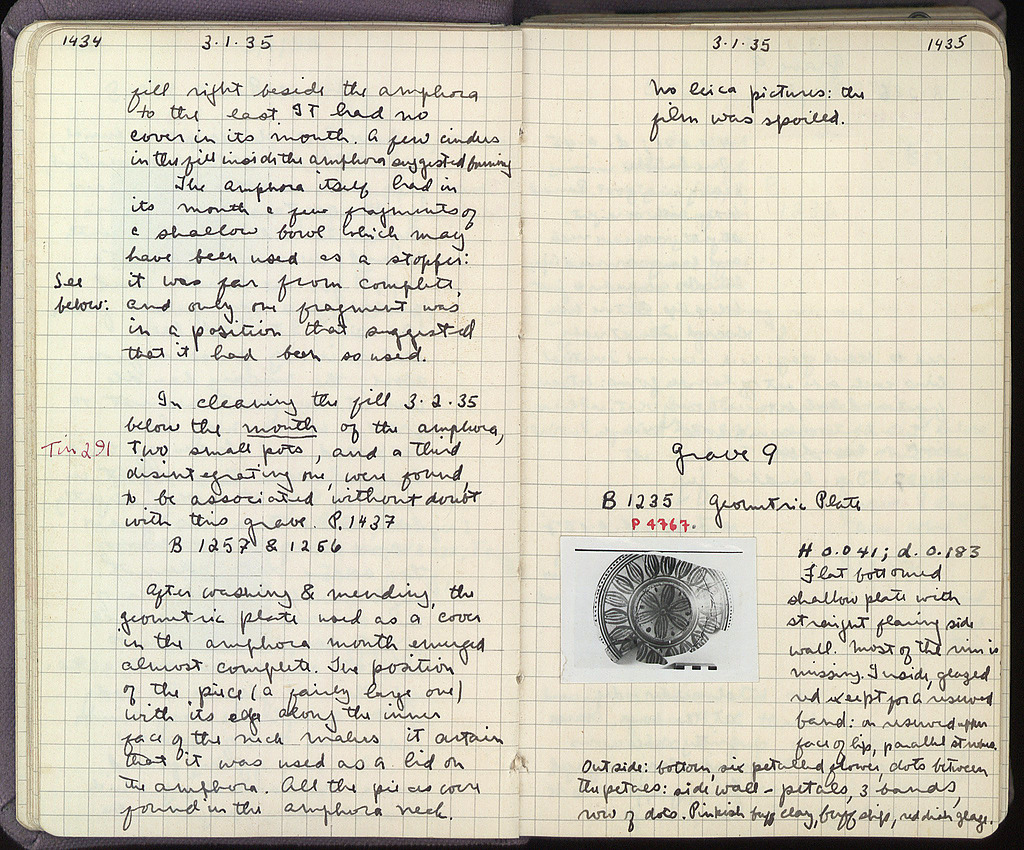 1434
3·1·35
fill right beside the amphora
to the east. It had no
cover in its mouth. A few cinders
in the fill inside the amphora suggested burning
The amphora itself had in
its mouth a few fragments of
a shallow bowl which may
have been used as a stopper:
See
below:
it was far from complete,
and only one fragment was
in a position that suggested
that it had been so used.
In cleaning the fill 3·2·35
below the mouth of the amphora,
Tin 291
two small pots, and a third
disintegrating one, were found,
to be associated without doubt
with this grave. P. 1437
B 1257 & 1256
After washing & mending, the
geometric plate used as a cover
in the amphora mouth emerged
almost complete. The position
of the piece (a fairly large one)
with its edge along the inner
face of the neck makes it certain
that it was used as a lid on
the amphora. All the pieces were
found in the amphora neck.
3·1·35
1435
No leica pictures: the
film was spoiled.
Grave 9
B 1235 Geometric Plate
P 4767.
H 0.041; d. 0.183
Flat bottomed
shallow plate with
straight flaring side
wall. Most of the rim is
missing. Inside, glazed
red except for a reserved
band: on reserved upper
face of lip, parallel strokes.
Outside: bottom, six petalled flower, dots between
the petals: side wall - petals, 3 bands,
row of dots. Pinkish buff clay, buff slip, reddish glaze.